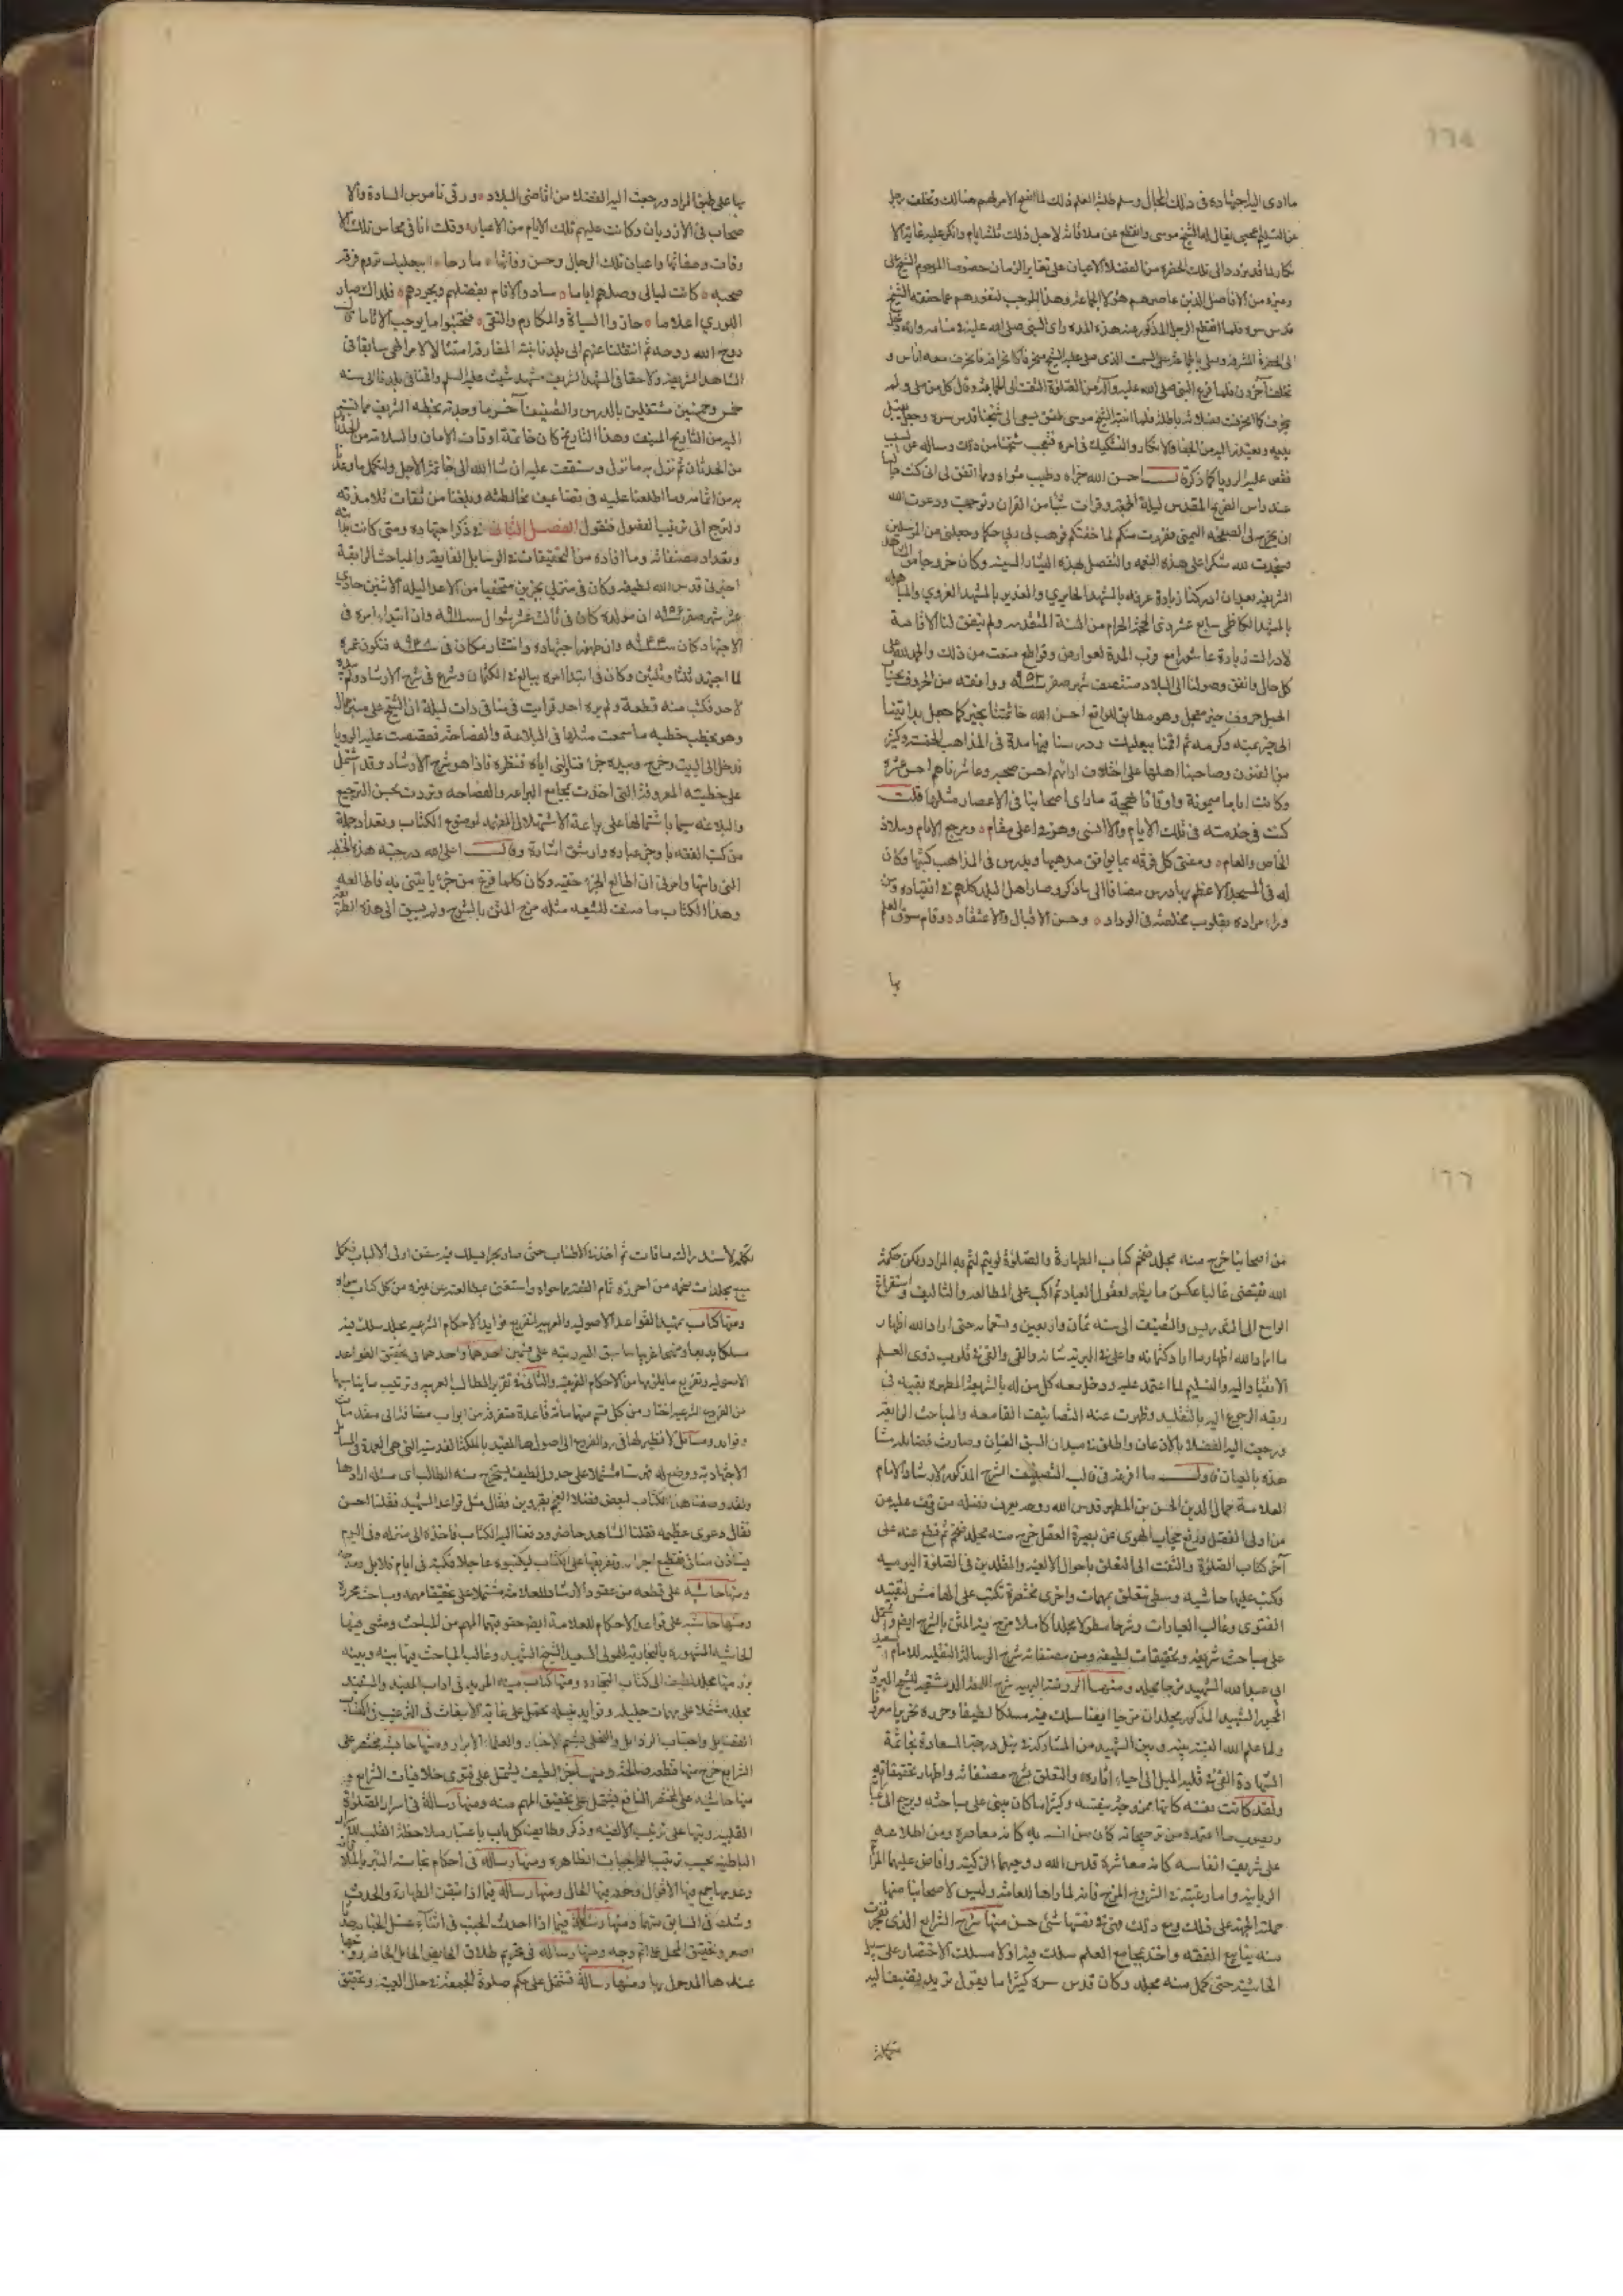 ١٦٥
ما ادى اليه اجتهاده فى ذلك الحال وسلم طلبة العلم ذلك لما اتضح الامر لهم هنالك وتخلف رجل
عن التسليم عجمى يقال له الشيخ موسى وانقطع عن ملاقاته لاجل ذلك ثلثة ايام وانكر عليه غاية الا
نكار لما قد تردد الى تلك الحضرة من الفضلاء الاعيان على تغاير الزمان خصوصا المرحوم الشيخ على
وغيره من الافاضل الذين عاصرهم هؤلاء الجماعة وهذا الموجب لنفورهم عما حققه الشيخ
قدس سره فلما انقطع الرجل المذكور عنه هذه المدة راى النبى صلى الله عليه فى منامه وانه دخل
الى الحضرة المشرفة وصلى بالجماعة على السمت الذى صلى عليه الشيخ منحرفا كانحرافه فانحرف معه اناس و
تخلف آخرون فلما فرغ النبى صلى الله عليه وآله من الصلوة التفت الى الجماعة وقال كل من صلى ولم
ينحرف كما انحرفت فصلاته باطلة فلما انتبه الشيخ موسى طفق يسعى الى شيخنا قدس سره وجعل يقبل
يديه ويعتذر اليه من الجفاء والانكار والتشكيك فى امره فتعجب شيخنا من ذلك وساله عن السبب
فقص عليه الرويا كما ذكره قال احسن الله جزاه وطيب مثواه ومما اتفق لى انى كنت جالسا
عند راس الضريح المقدس ليلة الجمعة وقرات شيئا من القران وتوجهت ودعوت الله
ان يخرج لى المصحف اليمنى ففررت منكم لما خفتكم فوهب لى ربى حكما وجعلنى من المرسلين
سجدت لله شكرا على هذه النعمة والتفضل بهذه البشارة السنية وكان خروجنا من المشاهد
الشريفة بعد ان ادركنا زيارة عرفة بالمشهد الحايرى والغدير بالمشهد الغروى والمباهلة
بالمشهد الكاظمى سابع عشر ذى الحجة الحرام من السنة المتقدمة ولم يتفق لنا الاقامة
لادراك زيارة عاشورا مع قرب المدة لعوارض وقواطع منعت من ذلك والحمد لله على
كل حال واتفق وصولنا الى البلاد منتصف شهر صفر سنة ٩٥٣ ووافقه من الحروف بحساب
الجمل حروف خير معجل وهو مطابق للواقع احسن الله خاتمتنا بخير كما جعل بدايتنا
الى خير بمنه وكرمه ثم اقمنا ببعلبك ودرسنا فيها مدة فى المذاهب الخمسة وكثير
من الفنون وصاحبنا اهلها على اختلاف ارائهم احسن صحبة وعاشرناهم احسن عشرة
وكانت اياما ميمونة واوقاتا بهجة ما راى اصحابنا فى الاعصار مثلها قلت
كنت فى خدمته فى تلك الايام ولا انسى وهو فى اعلى مقام ومرجع الانام وملاذ
الخاص والعام ومفتى كل فرقة بما يوافق مذهبها ويدرس فى المذاهب كتبها وكان
له فى المسجد الاعظم بها درس مضافا الى ما ذكر وصار اهل البلد كلهم فى انقياده ومن
وراء مراده بقلوب مخلصة فى الوداد وحسن الاقبال والاعتقاد وقام سوق العلم
بها
بها على طبق المراد ورجعت اليه الفضلاء من اقاصى البلاد ورقى ناموس السادة والا
صحاب فى الازدياد وكانت عليهم تلك الايام من الاعياد وقلت انا فى محاسن تلك الا
وقات وصفاتها واعيان تلك الرجال وحسن وفائها
صحبه كانت ليالى وصلهم اياما سادوا الانام بفضلهم وبجودهم فلذاك صاروا
للورى اعلاما حازوا السيادة والمكارم والتقى فتجنبوا ما يوجب الآثاما قال
روح الله روحه ثم انتقلنا عنهم الى بلدنا بنية المفارقة امتثالا لامر الهى سابقا فى
المشاهد الشريفة ولاحقا فى المشهد الشريف مشهد شيث عليه السلم واقمنا فى بلدنا الى سنة
خمس وخمسين مشتغلين بالدرس والتصنيف آخر ما وجدته بخطه الشريف مما نسبته
اليه من التاريخ المنيف وهذا التاريخ كان خاتمة اوقات الامان والسلامة من الحدثان
من الحدثان ثم نزل به ما نزل وستقف عليه ان شاء الله الى خاتمة الاجل ولنكمل ما وعدنا
به من اتمامه وما اطلعنا عليه فى تضاعيف مخالطته وبلغنا من ثقات تلامذته
ولنرجع الى ترتيب الفصول فنقول الفصل الثانى فى ذكر اجتهاده ومتى كانت بدايته
وتعداد مصنفاته وما افاده من التحقيقات فى الوسايل الفايقة والمباحث الرايقة
اخبرنى قدس الله لطيفه وكان فى منزلى بجزين متخفيا من الاعداء ليلة الاثنين حادى
عشر شهر صفر سنة ٩٥٦ ان مولده كان فى ثالث عشر شوال سنة ٩١١ وان ابتداء امره فى
الاجتهاد كان سنة ٩٤٤ وان ظهور اجتهاده وانتشاره كان فى سنة ٩٤٨ فتكون عمره
لما اجتهد ثلثا وثلثين وكان فى ابتداء امره يبالغ فى الكتمان وشرع فى شرح الارشاد ولم يبده
لاحد وكتب منه قطعة ولم يره احد فرايت فى منامى ذات ليلة ان الشيخ على منبر عال
وهو يخطب خطبة ما سمعت مثلها فى البلاغة والفصاحة فقصصت عليه الرويا
فدخل الى البيت وخرج وبيده جزء فناولنى اياه فنظرته فاذا هو شرح الارشاد وقد اشتمل
على خطبته المعروفة التى اخذت بمجامع البراعة والفصاحة وتردت بحسن الترجيع
والبلاغة سيما باشتمالها على براعة الاستهلال المفهمة لموضوع الكتاب وتعداد جملة
من كتب الفقه باوجز عبارة وارشق اشارة وقال اعلى الله درجته هذه الخطبة
التى رايتها وامرنى ان اطالع الجزء خفية وكان كلما فرغ من جزء يأتينى به فاطالعه
وهذا الكتاب ما صنف للشيعة مثله مزج المتن بالشرح ولم يسبق الى هذه الطريقة
١٦٦
من اصحابنا خرج منه مجلد ضخم كتاب الطهارة والصلوة لو يتم لتم به المراد ولكن حكمة
الله تقتضى غالبا عكس ما يظهر لعقول العباد ثم اكب على المطالعة والتاليف واستفراغ
الوسع الى التدريس والتصنيف الى سنة ثمان واربعين وتسعماية حتى اراد الله اظهار
ما اراد الله اظهاره ما اراد كتمانه واعلى فى البرية شانه والقى والقى فى قلوب ذوى العلم
الانقياد اليه والتسليم لما اعتمد عليه ودخل معه كل من له بالشريعة المطهرة بقية فى
ربقة الرجوع اليه بالتقليد وظهرت عنه التصانيف القامعة والمباحث الرايقة
ورجعت اليه الفضلاء بالاذعان واطلق فى ميدان السبق العنان وصارت فضايله مشا
هدة بالعيان فاول ما افرغه فى قالب التصنيف الشرح المذكور لارشاد الامام
العلامة جمال الدين الحسن بن المطهر قدس الله روحه يعرف فضله من وقف عليه من
من اولى الفضل ورفع حجاب الهوى عن بصيرة العقل خرج منه مجلد ضخم ثم قطع عنه على
آخر كتاب الصلوة والتفت الى التعلق باحوال الالفية والمقلدين فى الصلوة اليومية
فكتب عليها حاشية وسطى تتعلق بمهمات واخرى مختصرة تكتب على الهامش لتقييد
الفتوى وغالب العبارات وشرحا مطولا مجلدا كاملا مزج فيه المتن بالشرح ايضا واشتمل
على مباحث شريفة وتحقيقات لطيفة ومن مصنفاته شرح الرسالة النفلية للامام السعيد
ابى عبد الله الشهيد مزجا مجلد ومنها الروضة البهية شرح اللمعة الدمشقية للشيخ المبرور
الحبور الشهيد المذكور مجلدان مزجا ايضا سلك فيه مسلكا لطيفا وحرره تحريرا معروفا
ولما علم الله النسبة بينه وبين الشهيد من المشاركة فى نيل درجة السعادة بخاتمة
الشهادة القى فى قلبه الميل الى احياء اثاره والتعلق بشرح مصنفاته واظهار تحقيقاته
ولقد كانت نفسه كانها ممزوجة بنفسه وكثيرا ما كان يبنى على مباحثه ويرجع الى
ويصوب ما اعتمده من ترجيحاته كان من انسه به كانه معاصره ومن اطلاعه
على شريف انفاسه كانه معاشره قدس الله روحيهما الزكية وافاض عليهما المراحم
الربانية واما رغبته فى الشروح المزجية فانه لما راها للعامة وليس لاصحابنا منها
حملته الحمية على ذلك ومع ذلك فهى فى نفسها شئ حسن ومنها شرح الشرايع الذى تفجرت
منه ينابيع الفقه واخذ بمجامع العلم سلك فيه اولا مسلك الاختصار على سبيل
الحاشية حتى كمل منه مجلد وكان قدس سره كثيرا ما يقول نريد نضيف اليه
تكملة
تكملة لاستدراك ما فات ثم اخذ فى الاطناب حتى صار بحرا يسلك فيه سفن اولى الالباب فكمل
سبع مجلدات ضخمة من احرزه تام الفقه بما حواه واستغنى بمطالعته عن غيره من كل كتاب سواه
ومنها كتاب تمهيد القواعد الاصولية والعربية لتفريع فوايد الاحكام الشرعية مجلد سلك فيه
مسلكا بديعا ومنهجا غريبا ما سبق اليه رتبه على قسمين احدهما واحدهما فى تحقيق القواعد
الاصولية وتفريع ما يلزمها من الاحكام الفرعية والثانى فى تقرير المطالب العربية وترتيب ما يناسبها
من الفروع الشرعية اختار من كل قسم منها مائة قاعدة متفرقة من ابواب مضافة الى مقدمات
وفوايد ومسائل لا نظير لها فى رد الفروع الى اصولها المفيد بالملكة القدسية التى هى العمدة فى المسائل
الاجتهادية ووضع له فهرستا مشتملا على جدول لطيف يستخرج منه الطالب اى مسئلة ارادها
ولقد وصفنا هذا الكتاب لبعض فضلاء العجم بقزوين فقال مثل قواعد الشهيد فقلنا احسن
فقال دعوى عظيمة فقلنا الشاهد حاضر ودفعنا اليه الكتاب فاخذه الى منزله وفى اليوم
يستأذن منا فى تقطيع اجزاء وتفريقها على الكتاب ليكتبوه عاجلا فكتبه فى ايام قلايل ومدحه
ومنها حاشية على قطعة من عقود الارشاد للعلامة مشتملا على تحقيقات مهمة ومباحث محررة
ومنها حاشية على قواعد الاحكام للعلامة ايضا حقق فيها المهم من المباحث ومشى فيها
الحاشية المشهورة بالنجارية للمولى السعيد الشيخ الشهيد وغالب المباحث فيها بينه وبينه
برز منها مجلد لطيف الى كتاب التجارة ومنها كتاب منية المريد فى اداب المفيد والمستفيد
مجلد مشتملا على مهمات جليلة وفوايد نبيلة تحمل على غاية الانبعاث فى الترغيب فى اكتساب
الفضايل واجتناب الرذايل والتحلى بشيم الاخيار والعلماء الابرار ومنها حاشية مختصر على
الشرايع خرج منها قطعة صالحة ومنها آخر لطيف يشتمل على فتوى خلافيات الشرايع و
منها حاشية على المختصر النافع تشتمل على تحقيق المهم منه ومنها رسالة فى اسرار الصلوة
القلبية رتبها على ترتيب الالفية وذكر وظايف كل باب باعتبار ملاحظة القلب للاسرار
الباطنة بحيث ترتيب الواجبات الظاهرة ومنها رسالة فى احكام نجاسة البئر بالملاقاة
وعدمها جمع فيها الاقوال وحقق فيها الحال ومنها رسالة فيما اذا تيقن الطهارة والحدث
وشك فى السابق منهما ومنها رسالة فيما اذا احدث المجنب فى اثناء غسل الجنابة حدثا
اصغر وتحقيق الحال على اتم وجه ومنها رسالة فى تحريم طلاق الحايض الحامل الحاضر زوجها
عندها المدخول بها ومنها رسالة تشتمل على حكم صلوة الجمعة فى حال الغيبة وتحقيق